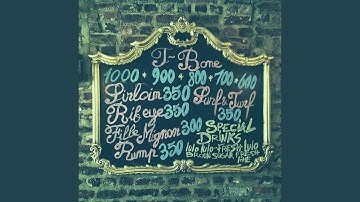 T-Bone
1000 + 900 + 800 + 700 + 600
Sirloin 350
Rib eye 350
Fille Mignon 300
Rump 350
Surf & Turf
350
SPECIAL
DRINKS
lulo lulo + FRESH lulo
SUGAR FRESH